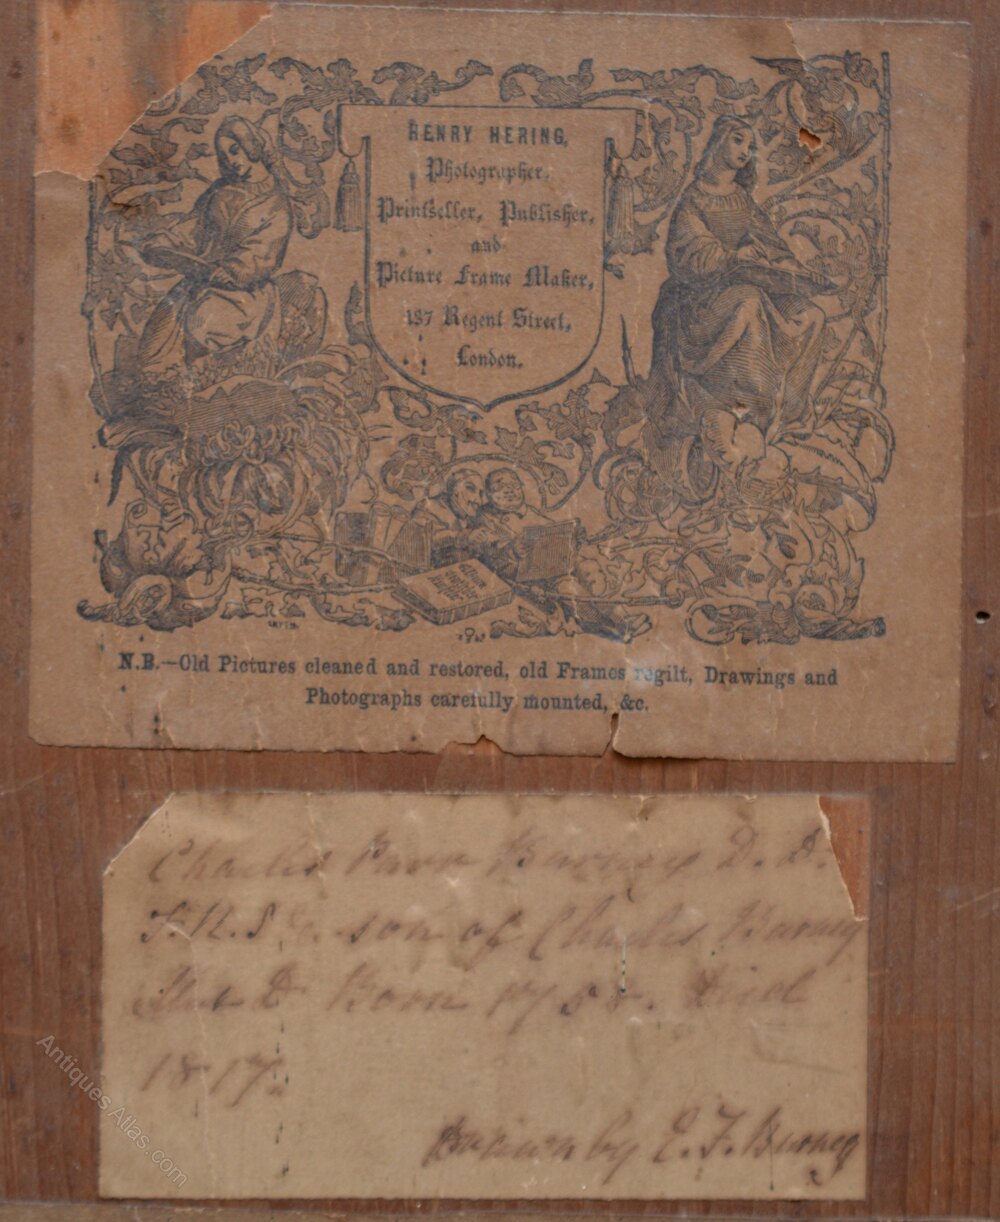 HENRY HERING,
Photographer,
Printseller, Publisher,
and
Picture Frame Maker,
187 Regent Street,
London.
N.B.—Old Pictures cleaned and restored, old Frames regilt, Drawings and
Photographs carefully mounted, &c.
Charles Parr Burney D.D.
F.R.S &c. son of Charles Burney
Mus D Born 1758. Died
1817.
Drawn by E. F. Burney
Antiques Atlas.com